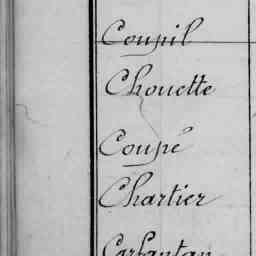 Coupil
Chouette
Coupé
Chartier
Carfantan